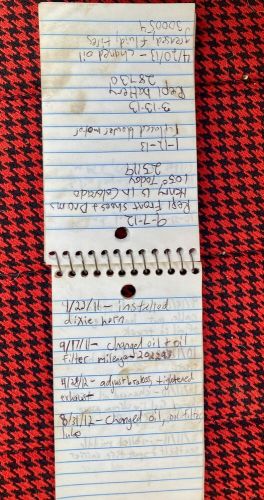 7/22/11 - installed
dixie horn
9/17/11 - changed oil + oil
filter mileage-
4/28/12 - adjust brakes, tightened
exhaust
8/31/12 - changed oil, oil filter
lube
9-7-12
Repl Front Shoes + Drums
Henry is in Colorado
105° Today
23119
1-12-13
Replaced blower motor
3-13-13
Repl battery
28730
4/20/13 - changed oil
greased, fluid, tires
300054